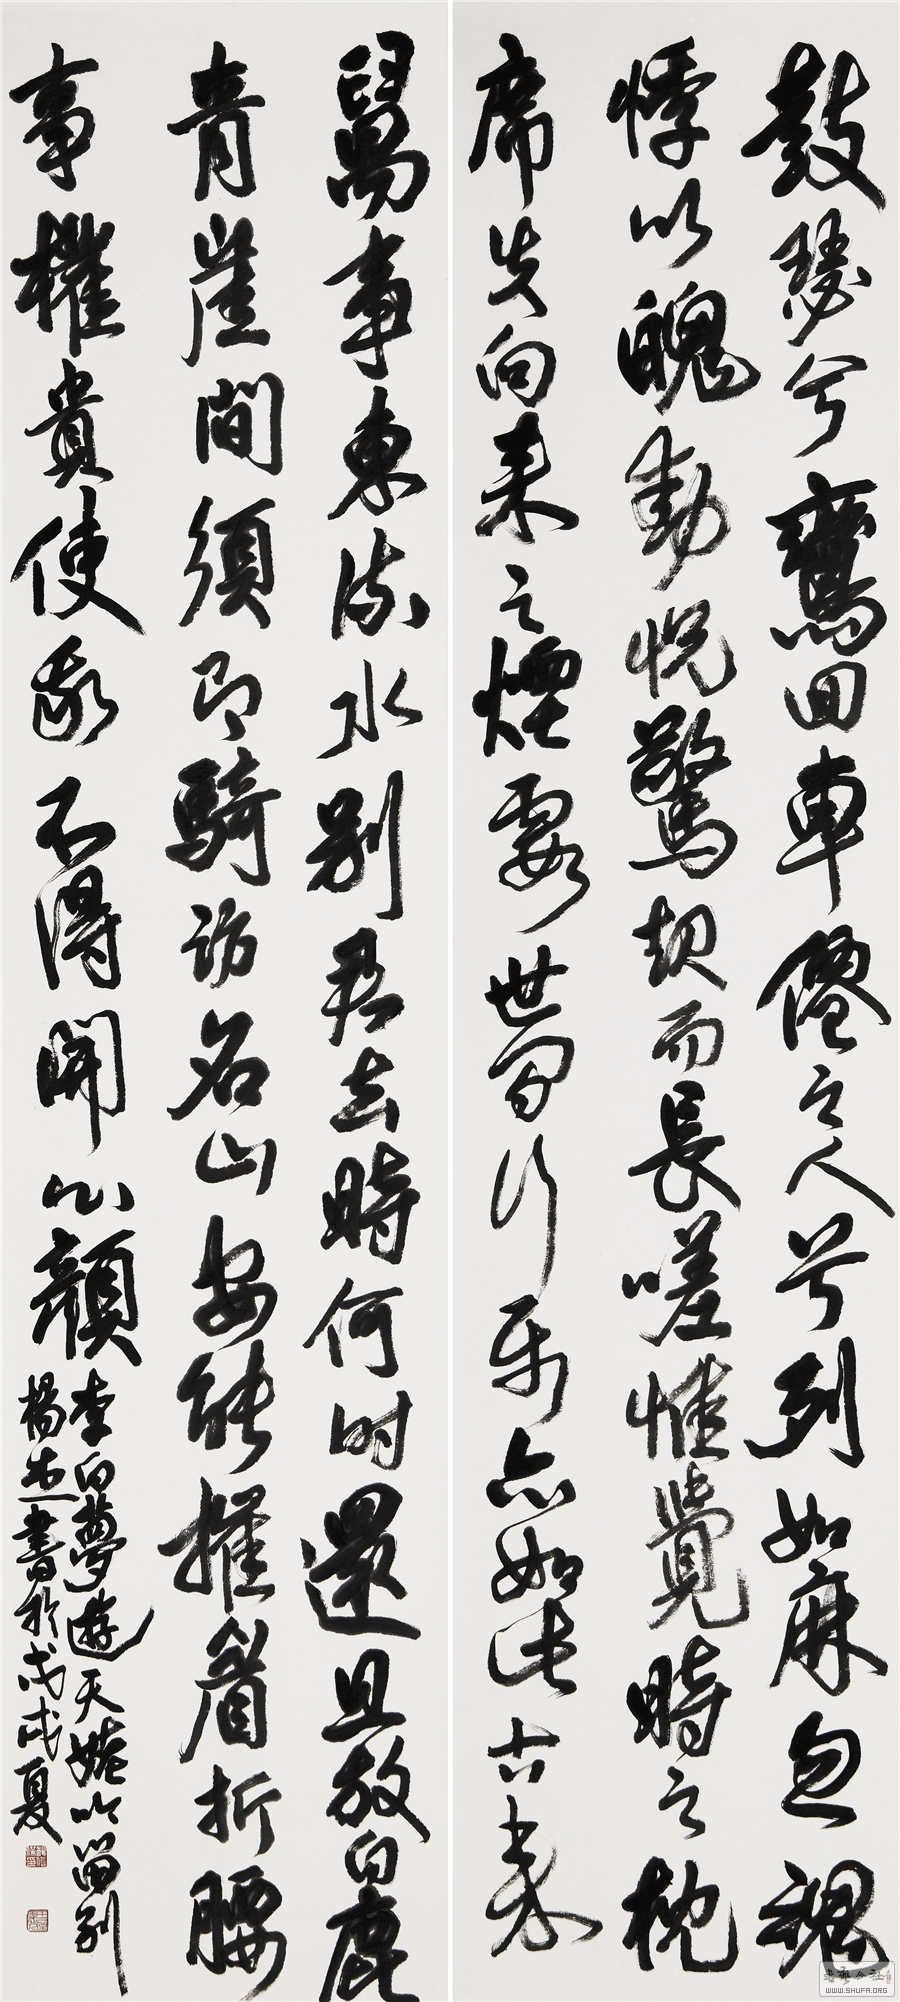 鼓瑟兮鸞回車僊之人兮列如麻忽魂
悸以魄動怳驚起而長嗟惟覺時之枕
席失向來之煙霞世間行樂亦如此古來
萬事東流水別君去時何時還且放白鹿
青崖間須即騎訪名山安能摧眉折腰
事權貴使我不得開心顏
李白夢遊天姥吟留別
楊 書於戊戌夏
WWW.SHUFA.ORG